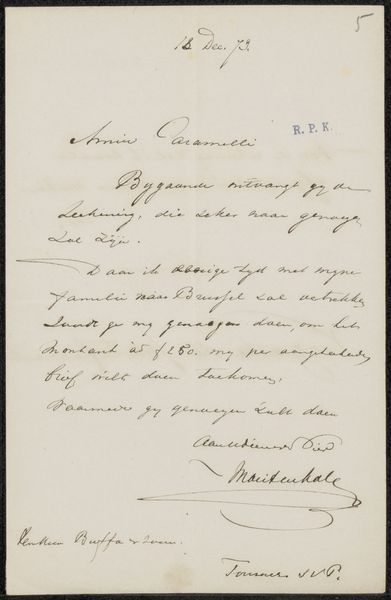 5
18 Dec. 73.
R. P. K.
Amice Caramelli
Bygaande ontvangt gy de
teekening, die zeker naar genoegen
zal zijn.
Daar ik eenige tyd met myne
familie naar Brussel zal vertrekken
zoudt ge my genoegen doen, om het
montant ad f 250. my per aangeteekende
brief wilt doen toekomen,
waarmede gy genoegen zult doen
Heeren Buffa & Zonen.
Tournez S.V.P.